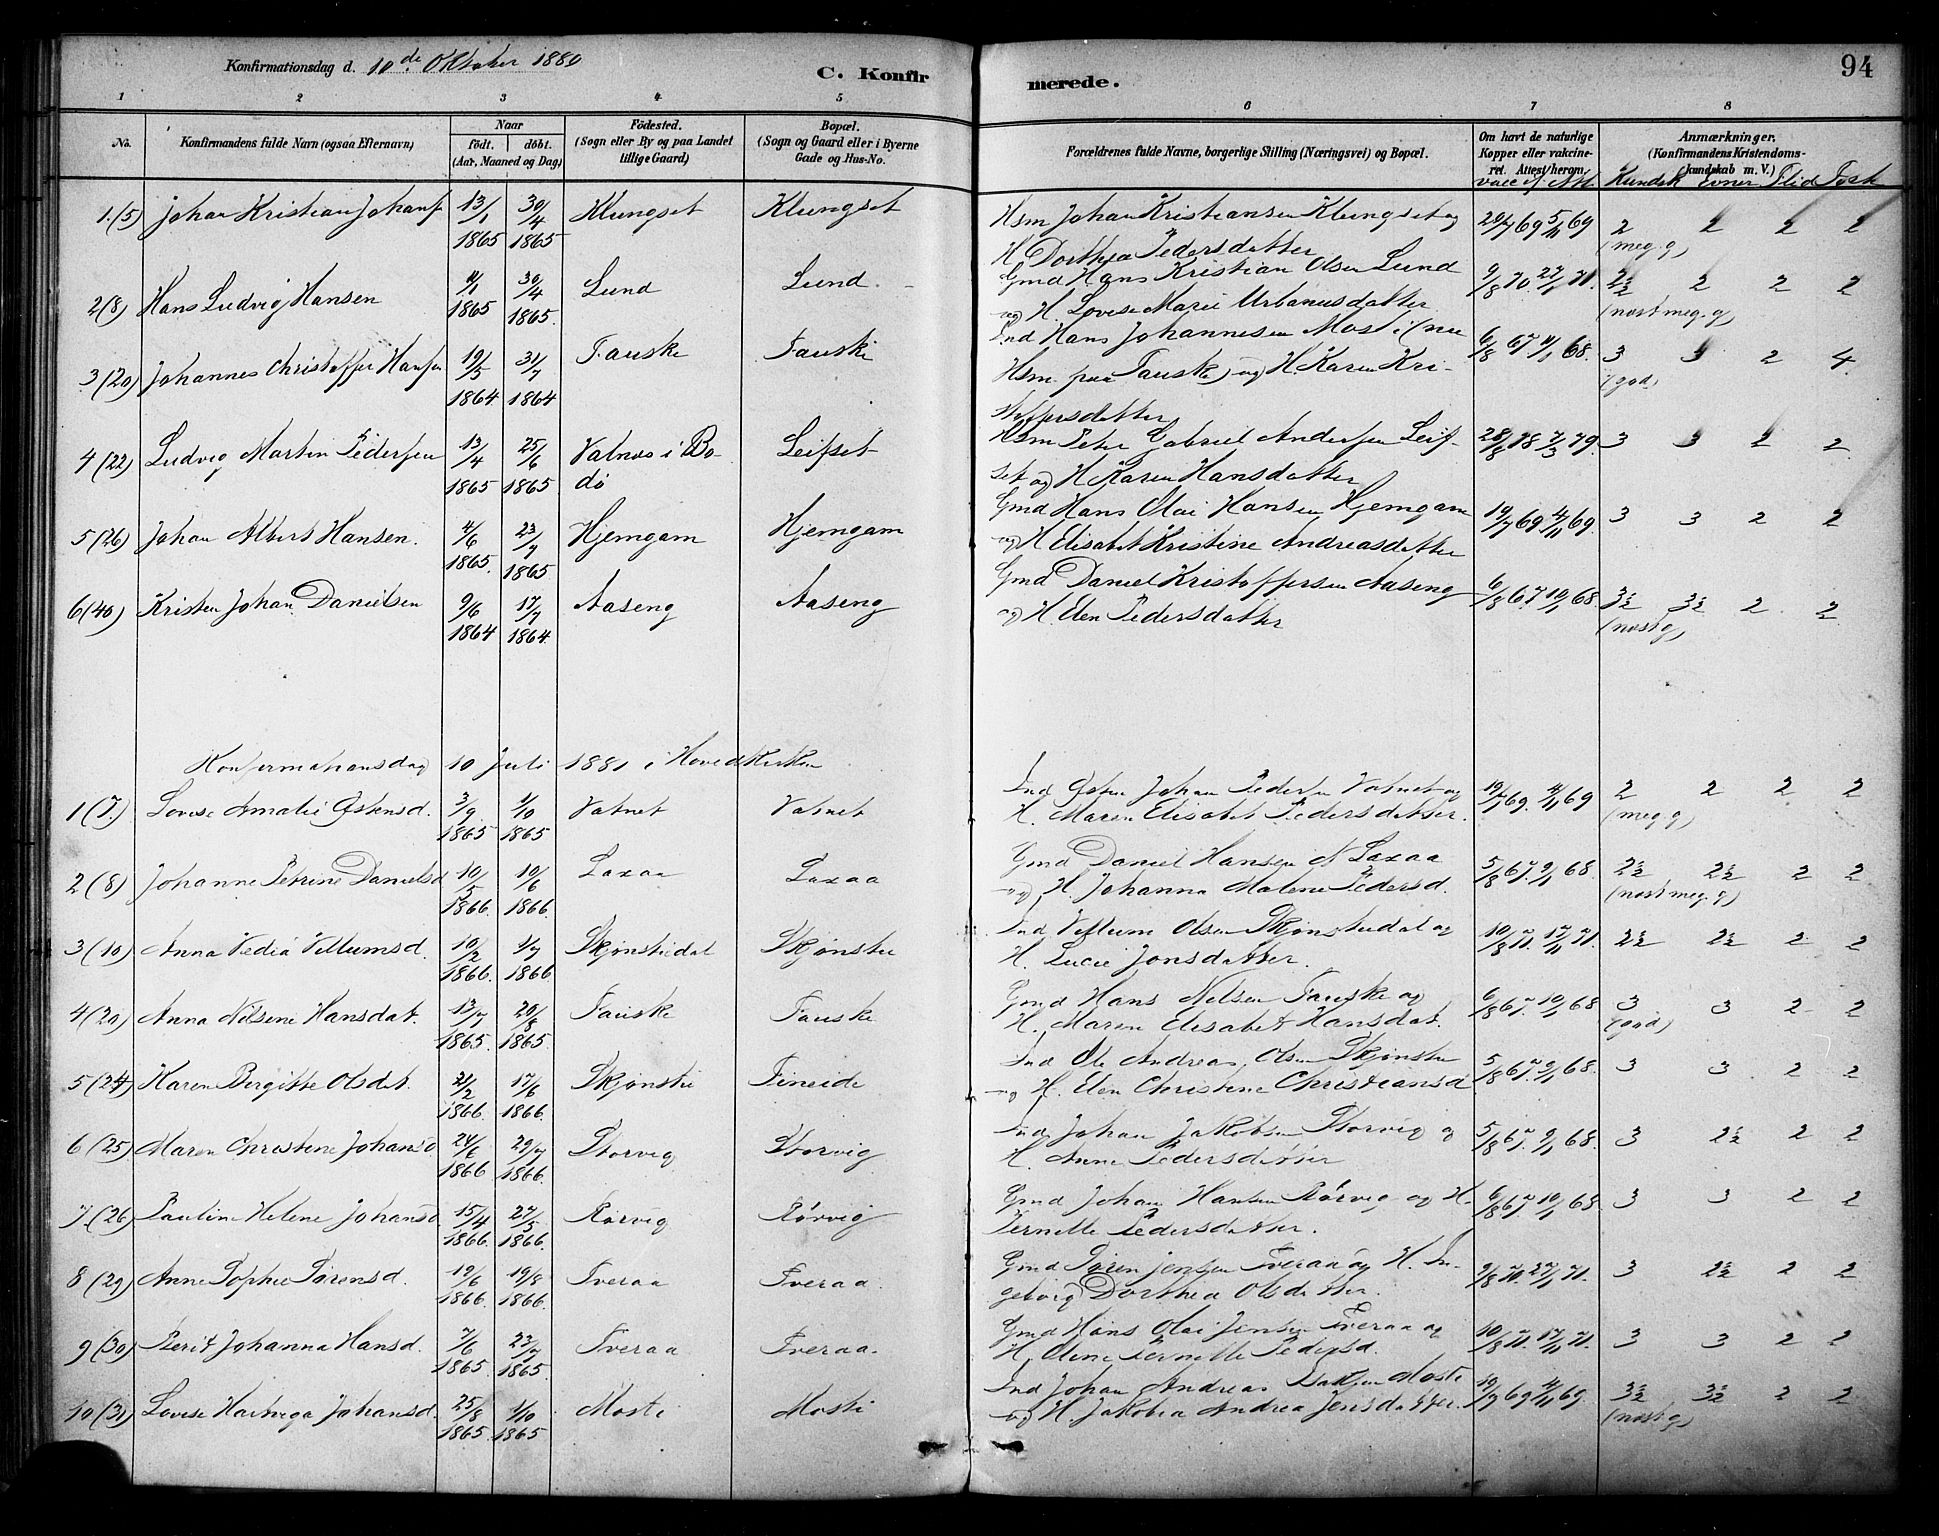 Konfirmationsdag d. 10de Oktober 1880
C. Konfir
merede.
94
1 2 3 4 5 6 7 8
No.
Konfirmandens fulde Navn (ogsaa Efternavn)
Naar
født. døbt.
(Aar, Maaned og Dag)
Födested.
(Sogn eller By og paa Landet
tillige Gaard)
Bopæl.
(Sogn og Gaard eller i Byerne
Gade og Hus-No.
Forældrenes fulde Navne, borgerlige Stilling (Næringsvei) og Bopæl.
Om havt de naturlige
Kopper eller vakcine-
ret. Attest herom.
Anmærkninger.
(Konfirmandens Kristendoms-
kundskab m. V.)
Kundsk Evner Flid
1.(5) Johan Kristian Johans 13/1 1865 30/4 1865 Klungset Klungset Hsm Johan Kristiansen Klungset og
H Dorthea Pedersdatter 20/7 69 5/11 69 2 (meg. g) 2 2 2
2(8) Hans Ludvig Hansen 11/1 1865 30/4 1865. Lund Lund. Gmd Hans Kristian Olsen Lund
og H. Lovise Marie Urbanusdatter 9/8 70. 27/1 71. 2½ (næst meg. g) 2 2 2
3(20) Johannes Christoffer Hansen 19/5 1864 31/7 1864 Fauske Fauske Ind Hans Johannesen Mosti (nu
Hsm. paa Fauske) og H. Karen Kri-
stoffersdatter 6/8 67 11/1 68. 3 (god) 3 2 4.
4(22) Ludvig Martin Pedersen 13/4 1865 25/6 1865 Valnes i Bo-
dö Leifset Hsm Peter Gabriel Andersen Leif-
set og H Karen Hansdatter 28/8 78 7/3 79. 3 3 2 2
5(26) Johan Albert Hansen. 4/6 1865. 23/7 1865 Hjemgam Hjemgam Gmd Hans Olai Hansen Hjemgam
og H Elisabet Kristine Andreasdatter 19/7 69 4/11 69. 3 3 2 2
6(40) Kristen Johan Danielsen 9/6 1864 17/7 1864 Aaseng Aaseng Gmd Daniel Kristoffersen Aaseng
og H. Elen Pedersdatter 6/8 67. 10/1 68. 3½ (næst g) 3½ 2 2
Konfirmationsdag 10 Juli 1881 i Hovedkirken
1(7.) Lovise Amalie Østensd. 3/9. 1865 1/10 1865 Vatnet Vatnet Ind Østen Johan Pedersen Vatnet og
H. Maren Elisabet Pedersdatter. 19/7 69. 4/11 69 2 (meg. g) 2 2 2
2(8) Johanne Petrine Danielsd 10/5 1866. 10/6 1866. Laxaa Laxaa Gmd Daniel Hansen N Laxaa
og H. Johanna Malene Pedersd. 5/8 67. 9/1 68. 2½ (næst meg. g) 2½ 2 2
3(10) Anna Vedia Villumsd. 10/2 1866. 1/7 1866. Skjønstudal Skjønstu Ind Villum Olsen Skjønstudal og
H. Lucie Jonsdatter. 10/8 71. 17/11 71. 2½ 2½ 2 2
4(20) Anna Nilsine Hansdat. 13/7 1865. 20/8 1865. Fauske Fauske Gmd Hans Nilsen Fauske og
H. Maren Elisabet Hansdat. 6/8 67. 10/1 68. 3 (god) 3 2 2
5(24) Karen Bergitte Olsdat. 21/2 1866. 17/6 1866. Skjønstu Fineide Ind Ole Andreas Olsen Skjønstu
og H. Elen Christine Christiansd 5/8 67. 9/1 68. 3 3 2 2
6(25) Maren Christine Johansd 24/6 1866. 29/7 1866. Storvig Storvig Ind Johan Jakobsen Storvig og
H. Anne Pedersdatter 5/8 67. 9/1 68. 3 2½ 2 2
7(26) Pauline Helene Johansd. 15/4 1866. 27/5 1866. Rørvig Rørvig Gmd Johan Hansen Rörvig og H.
Pernelle Pedersdatter. 6/8 67. 10/1 68. 3 3 2 2
8(29) Anne Sophie Sørensd. 12/6 1866. 19/8 1866. Tveraa Tveraa. Gmd Sören Jensen Tveraa og H. In-
geborg Dorthea Olsdatter. 9/8 70. 27/1 71. 3 2½ 2 2
9(30) Berit Johanna Hansd. 7/6 1865. 23/7 1865. Tveraa Tveraa. Gmd Hans Olai Jensen Tveraa og
H. Oline Pernelle Pedersd. 10/8 71. 17/11 71. 3 3 2 2
10(31) Lovise Hartviga Johansd. 25/8 1865. 1/10 1865 Mosti Mosti Ind Johan Andreas Mosti
og H. Jakobia Andrea Jensdatter. 19/7 69. 4/11 69. 3½ (næst g) 3½ 2 2